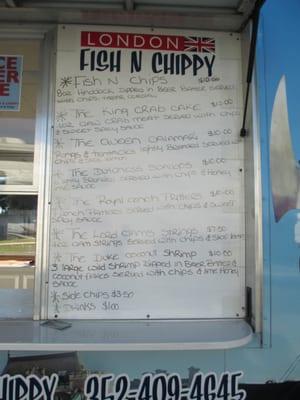 LONDON
FISH N CHIPPY
Fish N Chips $10.00
8oz Haddock Dipped in Beer Batter served
with chips, tartar
The King Crab Cake
crab meat served with chips
& sweet
The Queen Calamari $10.00
Rings & tentacles lightly Breaded served with
chips &
The Dutchess Scallops $10.00
lightly Breaded served with chips & Honey
sauce
The Royal Conch Fritters
Conch Fritters served with chips & sweet
sauce
The Lord Clams Strings $7.50
8oz clam strings served with chips &
The Duke Coconut Shrimp $10.50
large wild shrimp dipped in Beer Batter &
coconut flakes served with chips & lime Honey
Sauce
Side Chips $3.50
Drinks $1.00
HIPPY 352-409-4645